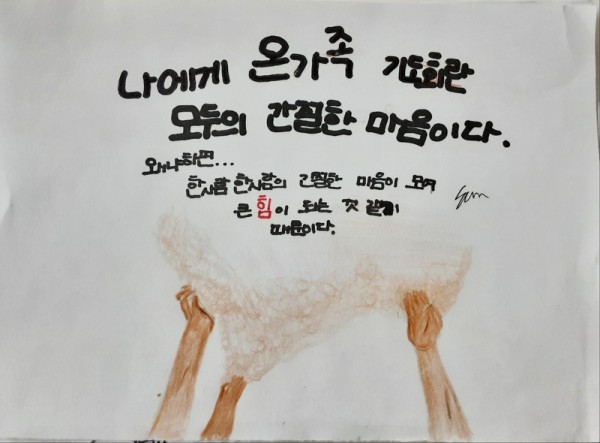 나에게 온가족 기도회란
모두의 간절한 마음이다.
왜냐하면...
한사람 한사람의 간절한 마음이 모여
큰 힘이 되는 것 같기
때문이다.